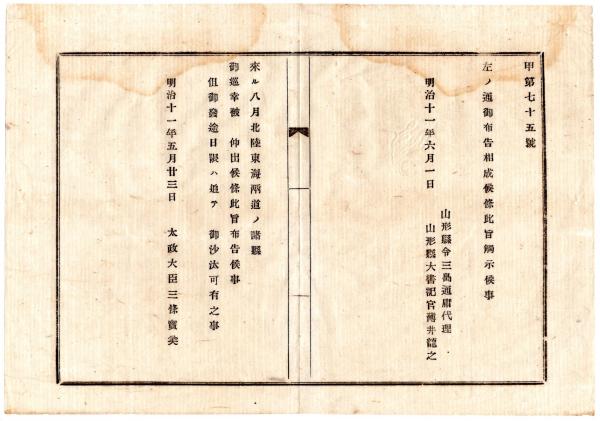 甲第七十五號
左ノ通御布告相成候條此旨觸示候事
明治十一年六月一日
山形縣令三島通庸代理
山形縣大書記官薄井龍之
來ル八月北陸東海兩道ノ諸縣
御巡幸被 仰出候條此旨布告候事
但御發途日限ハ追テ 御沙汰可有之事
明治十一年五月廿三日 太政大臣三條實美